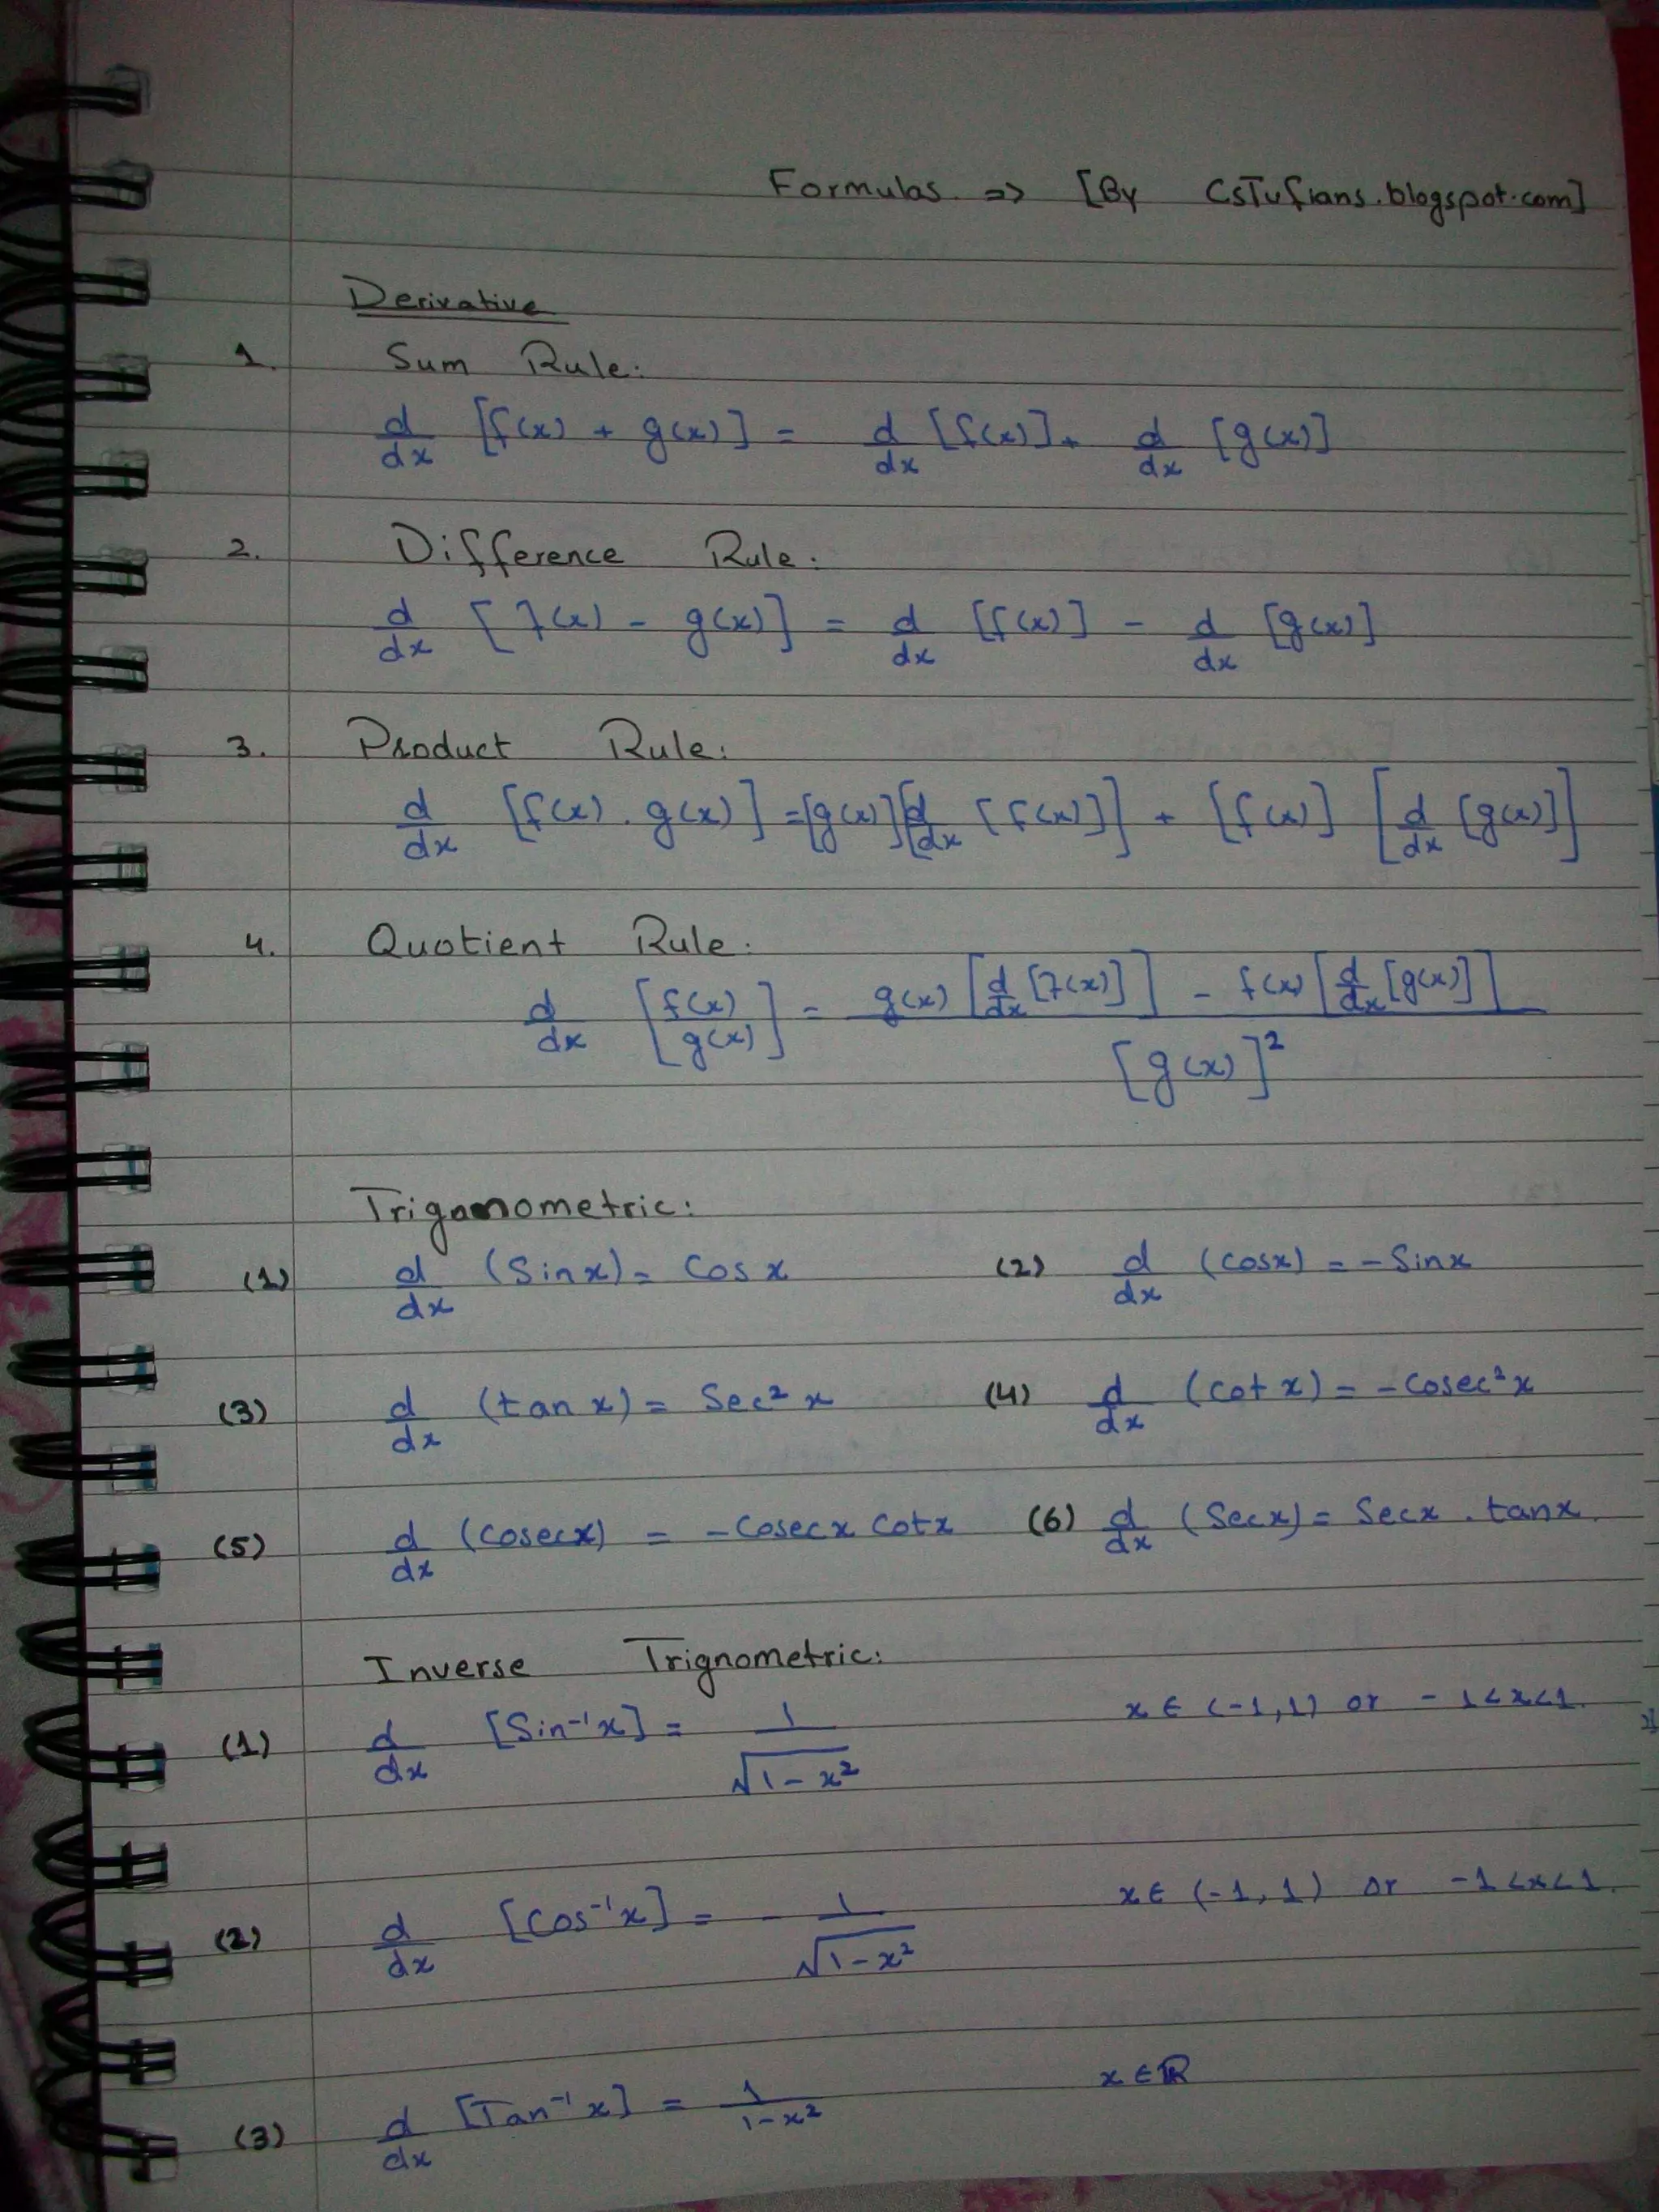 Formulas => [By CsTufians.blogspot.com]
Derivative
1. Sum Rule:
d/dx [f(x) + g(x)] = d/dx [f(x)] + d/dx [g(x)]
2. Difference Rule:
d/dx [f(x) - g(x)] = d/dx [f(x)] - d/dx [g(x)]
3. Product Rule:
d/dx [f(x) . g(x)] = [g(x)][d/dx [f(x)]] + [f(x)] [d/dx [g(x)]]
4. Quotient Rule:
d/dx [f(x)/g(x)] = (g(x) [d/dx [f(x)]] - f(x) [d/dx [g(x)]]) / [g(x)]²
Trigonometric:
(1) d/dx (Sinx) = Cosx (2) d/dx (cosx) = -Sinx
(3) d/dx (tan x) = Sec² x (4) d/dx (cot x) = -Cosec²x
(5) d/dx (cosecx) = -Cosecx cotx (6) d/dx (Secx) = Secx . tanx.
Inverse Trignometric:
(1) d/dx [Sin⁻¹x] = 1/√(1-x²) x ∈ (-1,1) or -1<x<1.
(2) d/dx [Cos⁻¹x] = - 1/√(1-x²) x ∈ (-1,1) or -1<x<1.
(3) d/dx [Tan⁻¹x] = 1/(1-x²) x ∈ ℝ